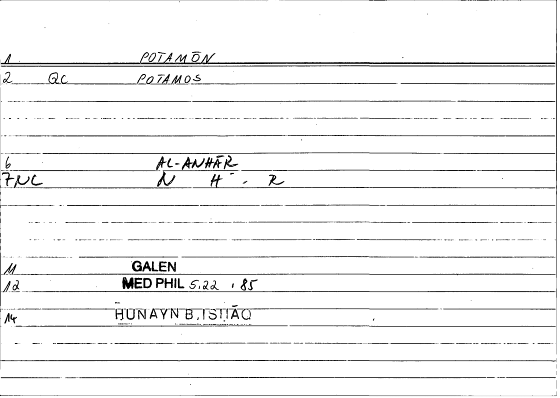 1 POTAMŌN
2 QC POTAMOS
6 AL-ANHĀR
7NC N H - R
11 GALEN
12 MED PHIL 5,22 , 85
14 ḤUNAYN B. ISḤĀQ